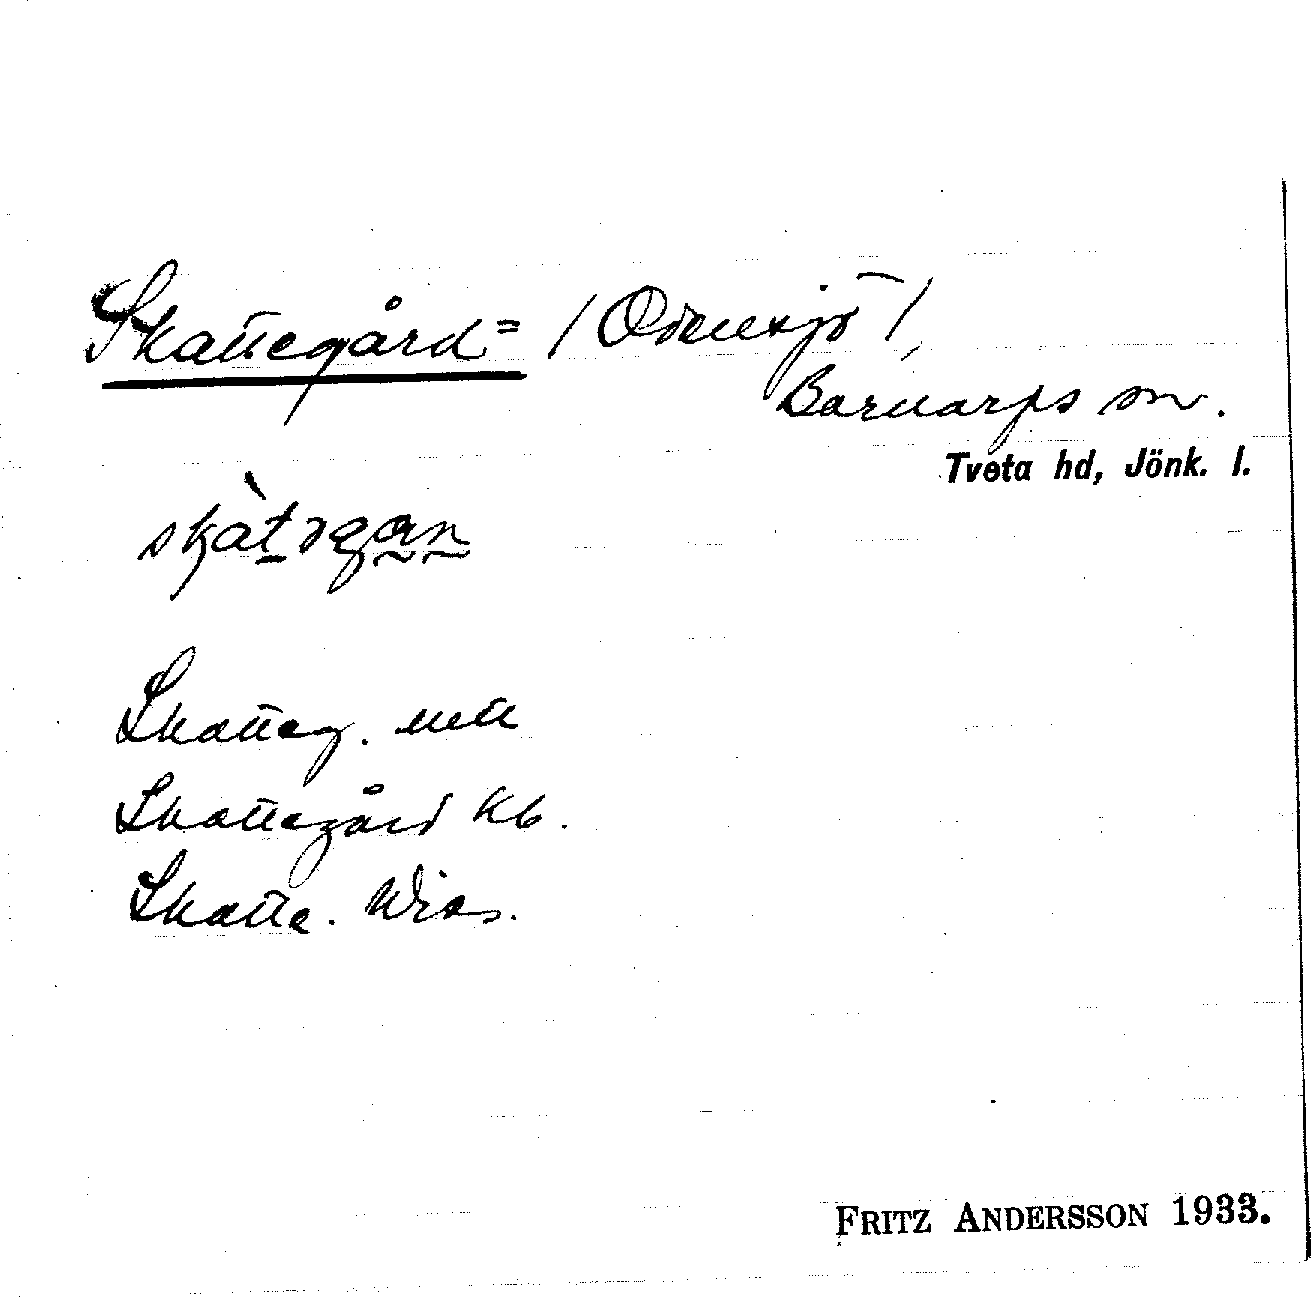 Skattegård= / Odensjö /,
Barnarps sn.
Tveta hd, Jönk. l.
skàtəgan
Skatteg. 
Skattegård Kb.
Skatte.
FRITZ ANDERSSON 1933.